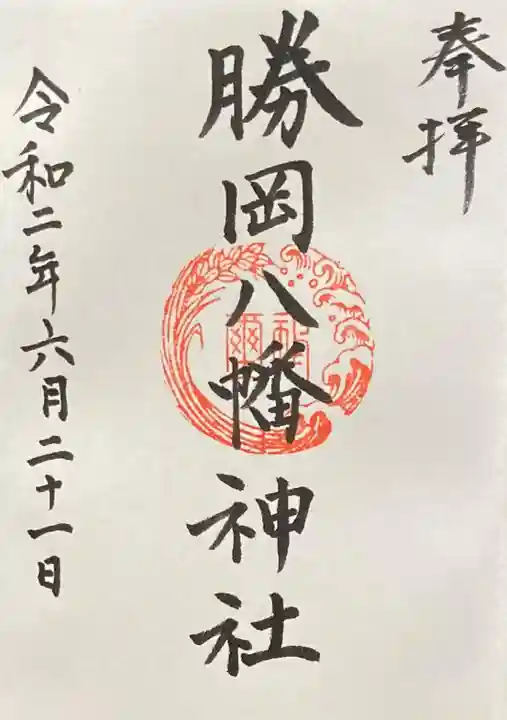 奉拝
勝岡八幡神社
令和二年六月二十一日